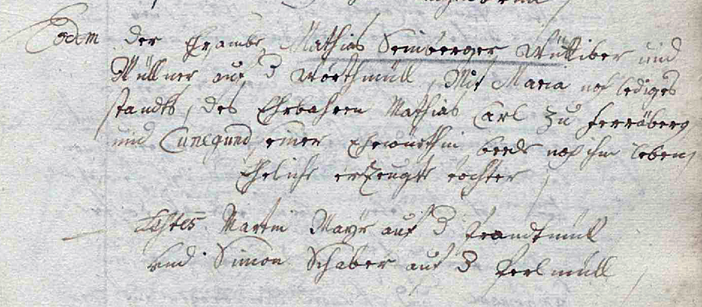 Eodem der Ehrsambe Mathias Seinberger Wittiber und
Müllner auf d Worthmüll, Mit Maria noch lediges
standts, des Ehrbahren Mathias Carl zu
und Cunegund einer Ehewürthin beede noch im leben
Ehelich erzeugte tochter
Testes Martin Mayr auf d Prandtmüll
und Simon Schaber auf d Perlmüll